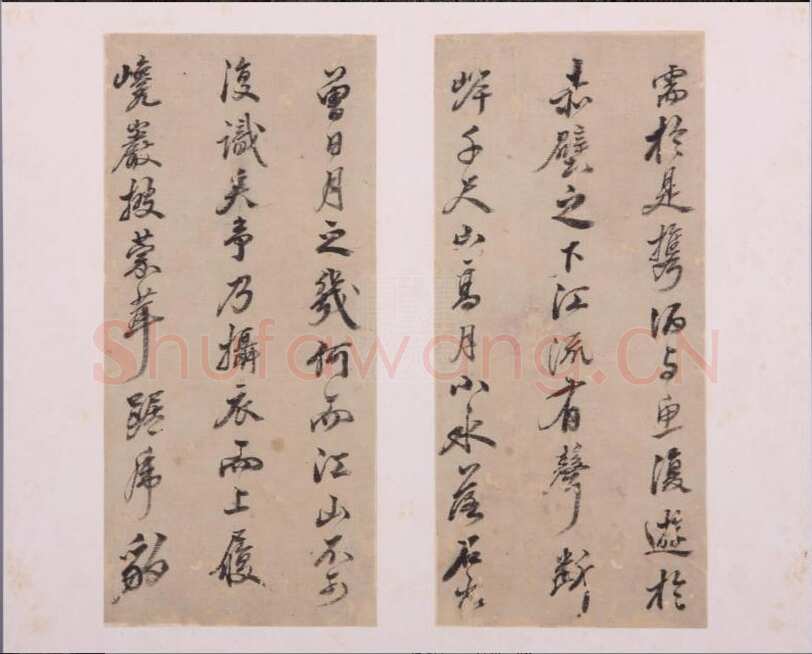 需於是攜酒与魚復遊於
赤壁之下江流有聲斷
岸千尺山高月小水落石出
曾日月之幾何而江山不可
復識矣予乃攝衣而上履
巉巖披蒙茸踞虎豹
Shufawang.CN